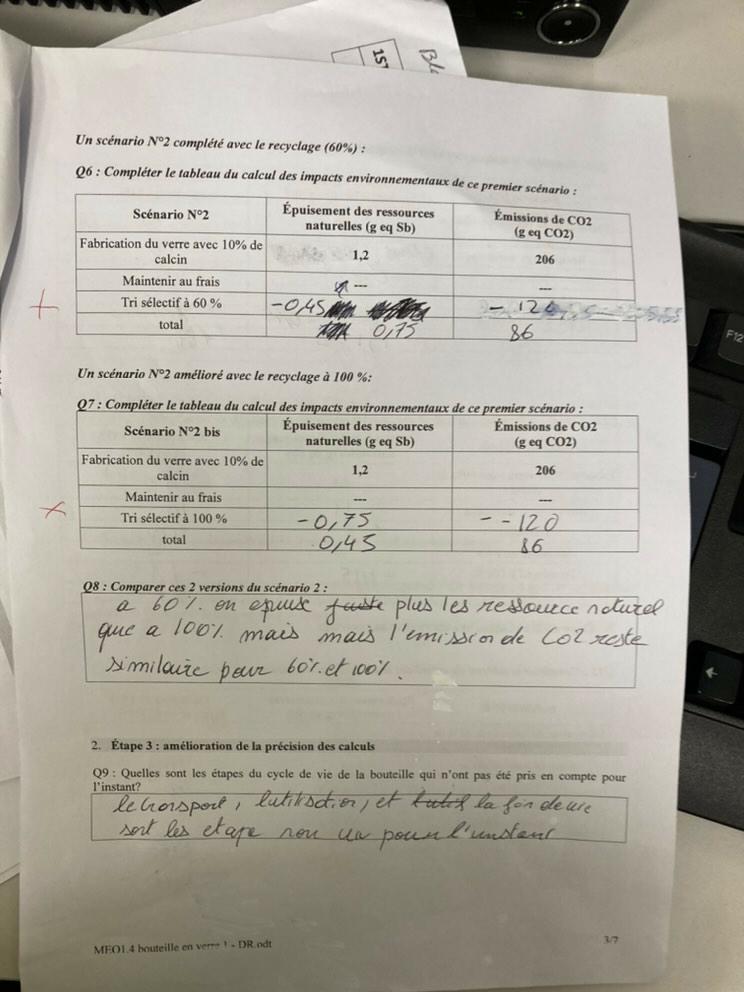 157
Un scénario N°2 complété avec le recyclage (60%) :
Q6 : Compléter le tableau du calcul des impacts environnementaux de ce premier scénario :
Scénario N°2 Épuisement des ressources naturelles (g eq Sb) Émissions de CO2 (g eq CO2)
Fabrication du verre avec 10% de calcin 1,2 206
Maintenir au frais --- ---
Tri sélectif à 60 % -0,45 - 120
total 0,75 86
Un scénario N°2 amélioré avec le recyclage à 100 %:
Q7 : Compléter le tableau du calcul des impacts environnementaux de ce premier scénario :
Scénario N°2 bis Épuisement des ressources naturelles (g eq Sb) Émissions de CO2 (g eq CO2)
Fabrication du verre avec 10% de calcin 1,2 206
Maintenir au frais --- ---
Tri sélectif à 100 % -0,75 - - 120
total 0,45 86
Q8 : Comparer ces 2 versions du scénario 2 :
a 60%. on epuise plus les ressource naturel
que a 100% mais mais l'emission de CO2 reste
similaire pour 60%. et 100%.
2. Étape 3 : amélioration de la précision des calculs
Q9 : Quelles sont les étapes du cycle de vie de la bouteille qui n'ont pas été pris en compte pour
l'instant?
le transport, l'utilisation, et la fin de vie
sont les etape non vu pour l'instant
MEO1.4 bouteille en verre 1 - DR.odt
3/7
F12